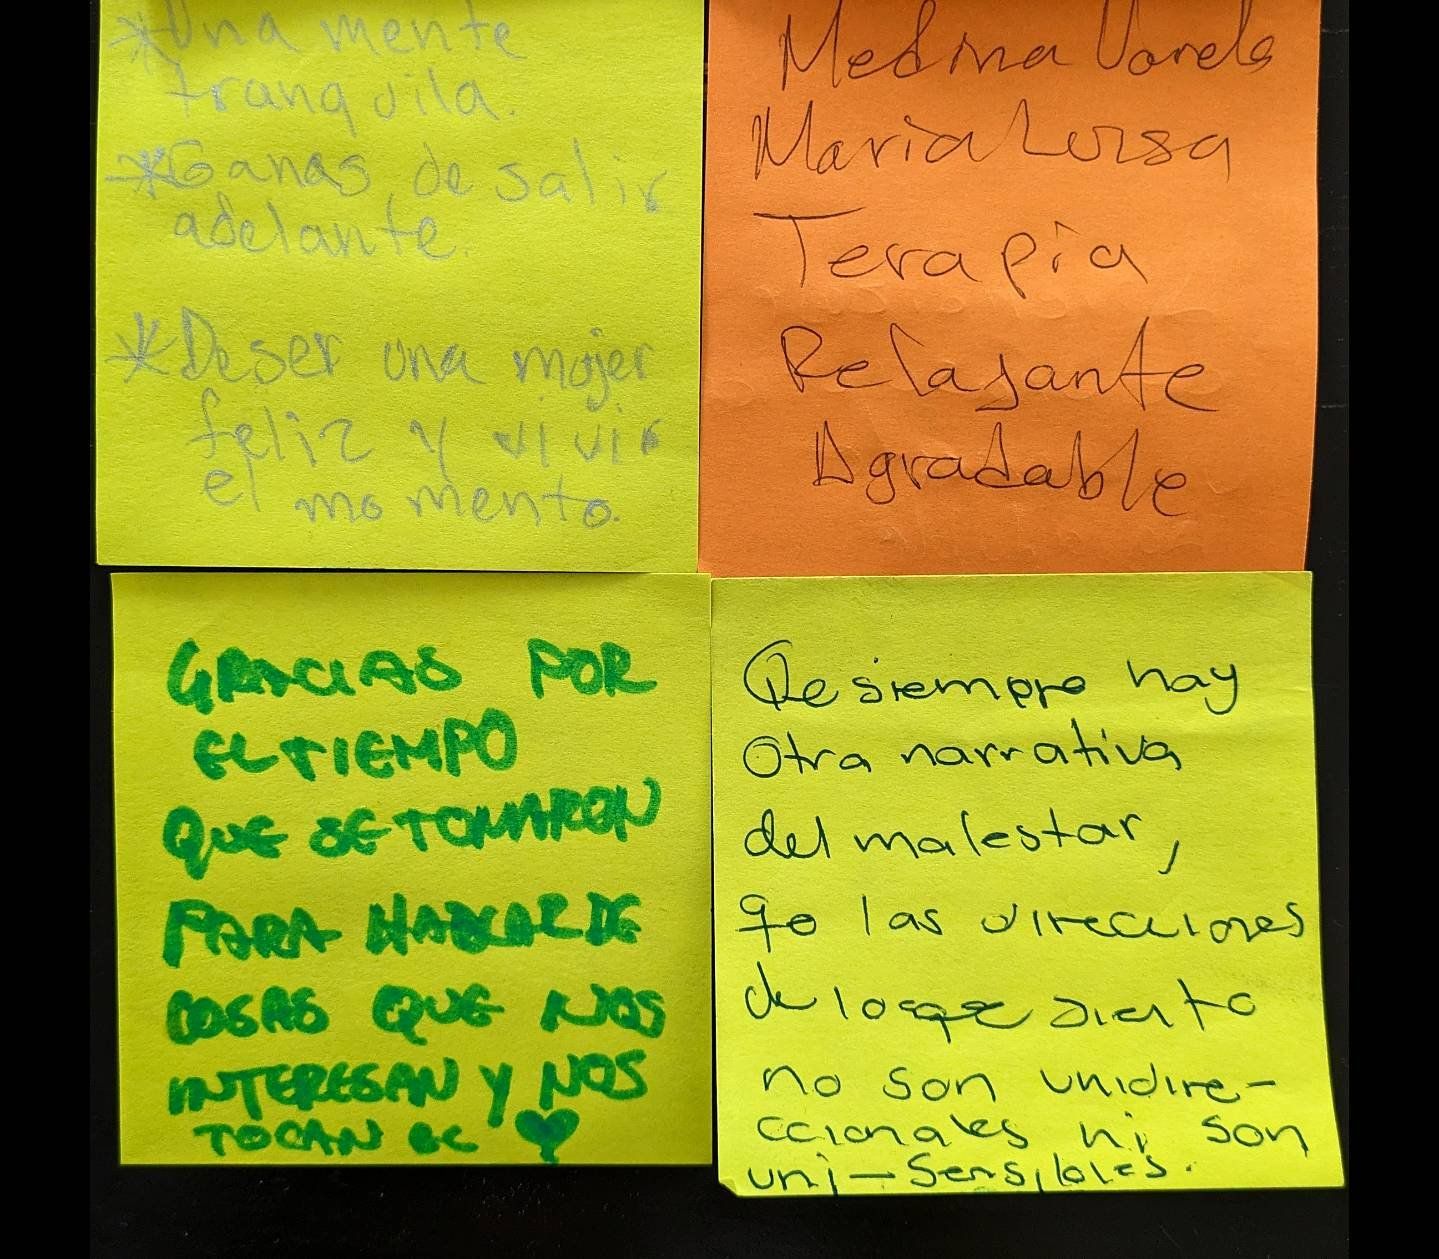 *Una mente
tranquila.
*Ganas de salir
adelante.
*Deser una mujer
feliz y vivir
el momento.
Medina Varela
Maria Luisa
Terapia
Relajante
Agradable
GRACIAS POR
EL TIEMPO
QUE SE TOMARON
PARA HABLAR DE
COSAS QUE NOS
INTERESAN Y NOS
TOCAN EL ♥
Qe siempre hay
otra narrativa
del malestar,
qe las direcciones
de lo qe siento
no son unidire-
ccionales ni son
uni-sensibles.